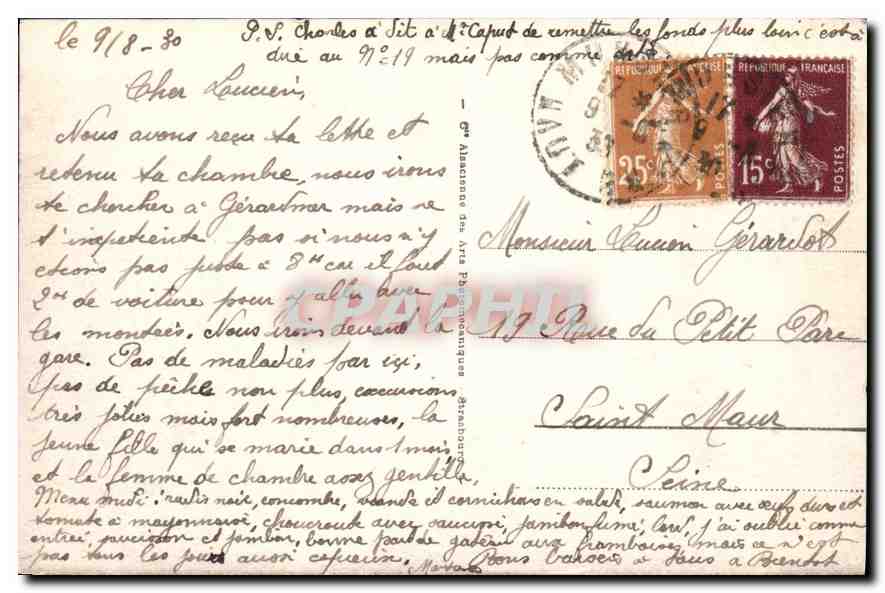 le 9/8-30
P.S. Charles a dit à Mr Caput de remettre les fonds plus loin c'est à
dire au N°19 mais pas comme
Cher Lucien,
Nous avons reçu ta lettre et
retenu ta chambre, nous irons
te chercher à Gérardmer mais ne
t'inpatiente pas si nous n'y
étions pas juste à 8 h car il faut
2 h de voiture pour y aller avec
les montées. Nous irons devant la
gare. Pas de maladies par ici,
pas de pêche non plus, excursions
très jolies mais fort nombreuses, la
jeune fille qui se marie dans 1 mois
et la femme de chambre assez gentille
Menu midi : radis noir, concombre, viande et cornichons en salade, saumon avec œufs durs et
tomate à mayonnaise, choucroute avec saucisse, jambon fumé, lard, j'ai oublié comme
entrée saucisson et jambon, bonne part de gateau aux framboises, mais ce n'est
pas tous les jours aussi Bons baisers à tous à Bientot
Cie Alsacienne des Arts Photomécaniques - Strasbourg
REPUBLIQUE FRANÇAISE
25c
REPUBLIQUE FRANÇAISE
15c
POSTES
Monsieur Lucien Gérardot
19 Rue du Petit Parc
Saint Maur
Seine
CPARPHIL